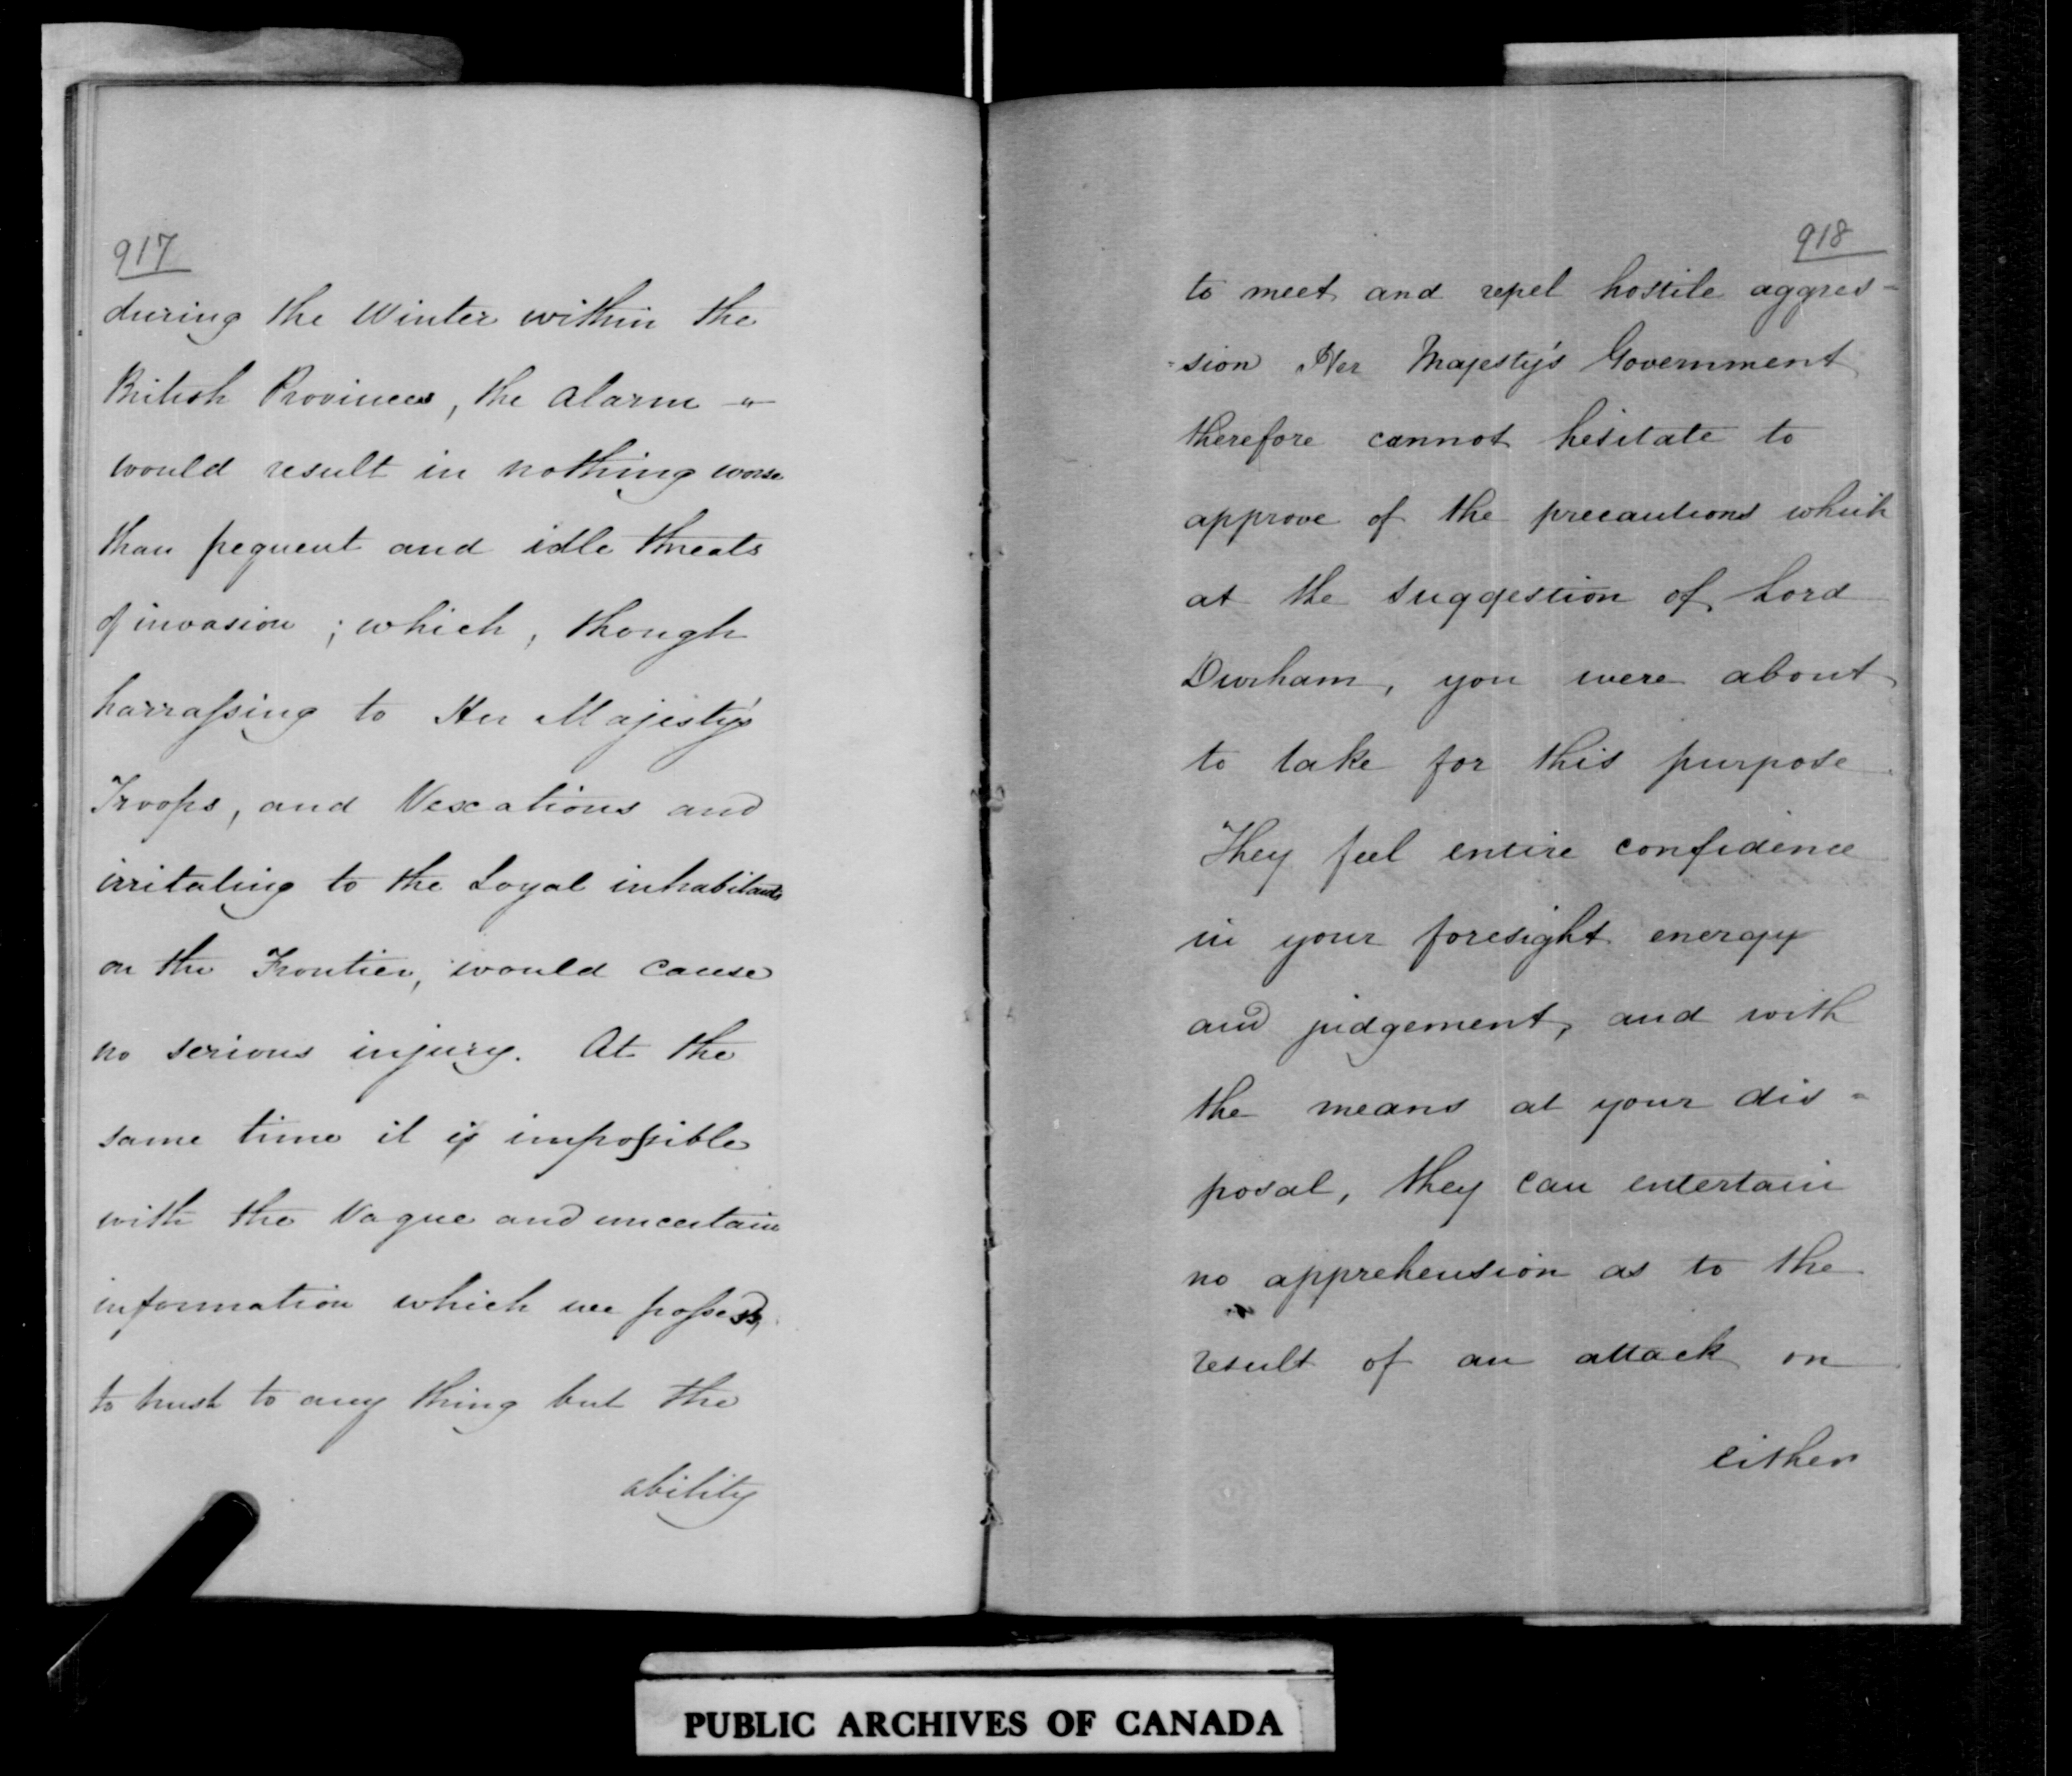 917
during the Winter within the
British Provinces, the alarm -"-
would result in nothing worse
than frequent and idle threats
of invasion ; which, though
harrassing to Her Majesty's
Troops, and Vexatious and
irritating to the Loyal inhabitants
on the Frontier, would cause
no serious injury. At the
same time it is impossible
with the Vague and uncertain
information which we possess,
to trust to any thing but the
ability
918
to meet and repel hostile aggres-
-sion Her Majesty's Government
therefore cannot hesitate to
approve of the precautions which
at the suggestion of Lord
Durham, you were about
to take for this purpose.
They feel entire confidence
in your foresight energy
and judgement, and with
the means at your dis-
posal, they can entertain
no apprehension as to the
result of an attack on
either
PUBLIC ARCHIVES OF CANADA